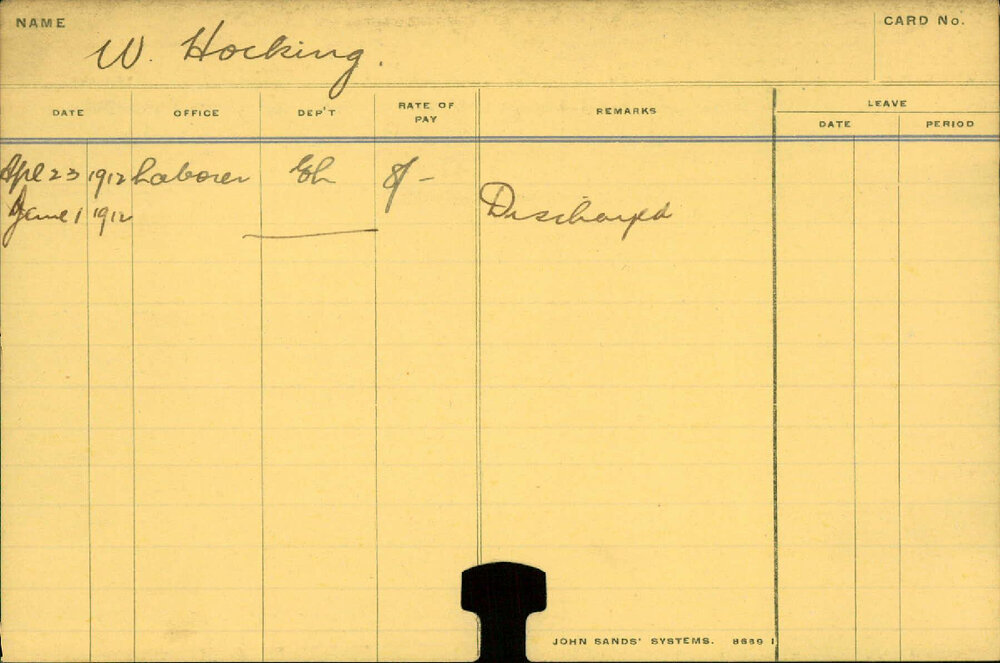 NAME W. Hocking. CARD No.
DATE OFFICE DEP'T RATE OF PAY REMARKS LEAVE
DATE PERIOD
Apl 23 1912 Laborer 8/-
June 1 1912 Discharged
JOHN SANDS' SYSTEMS. 8689 1